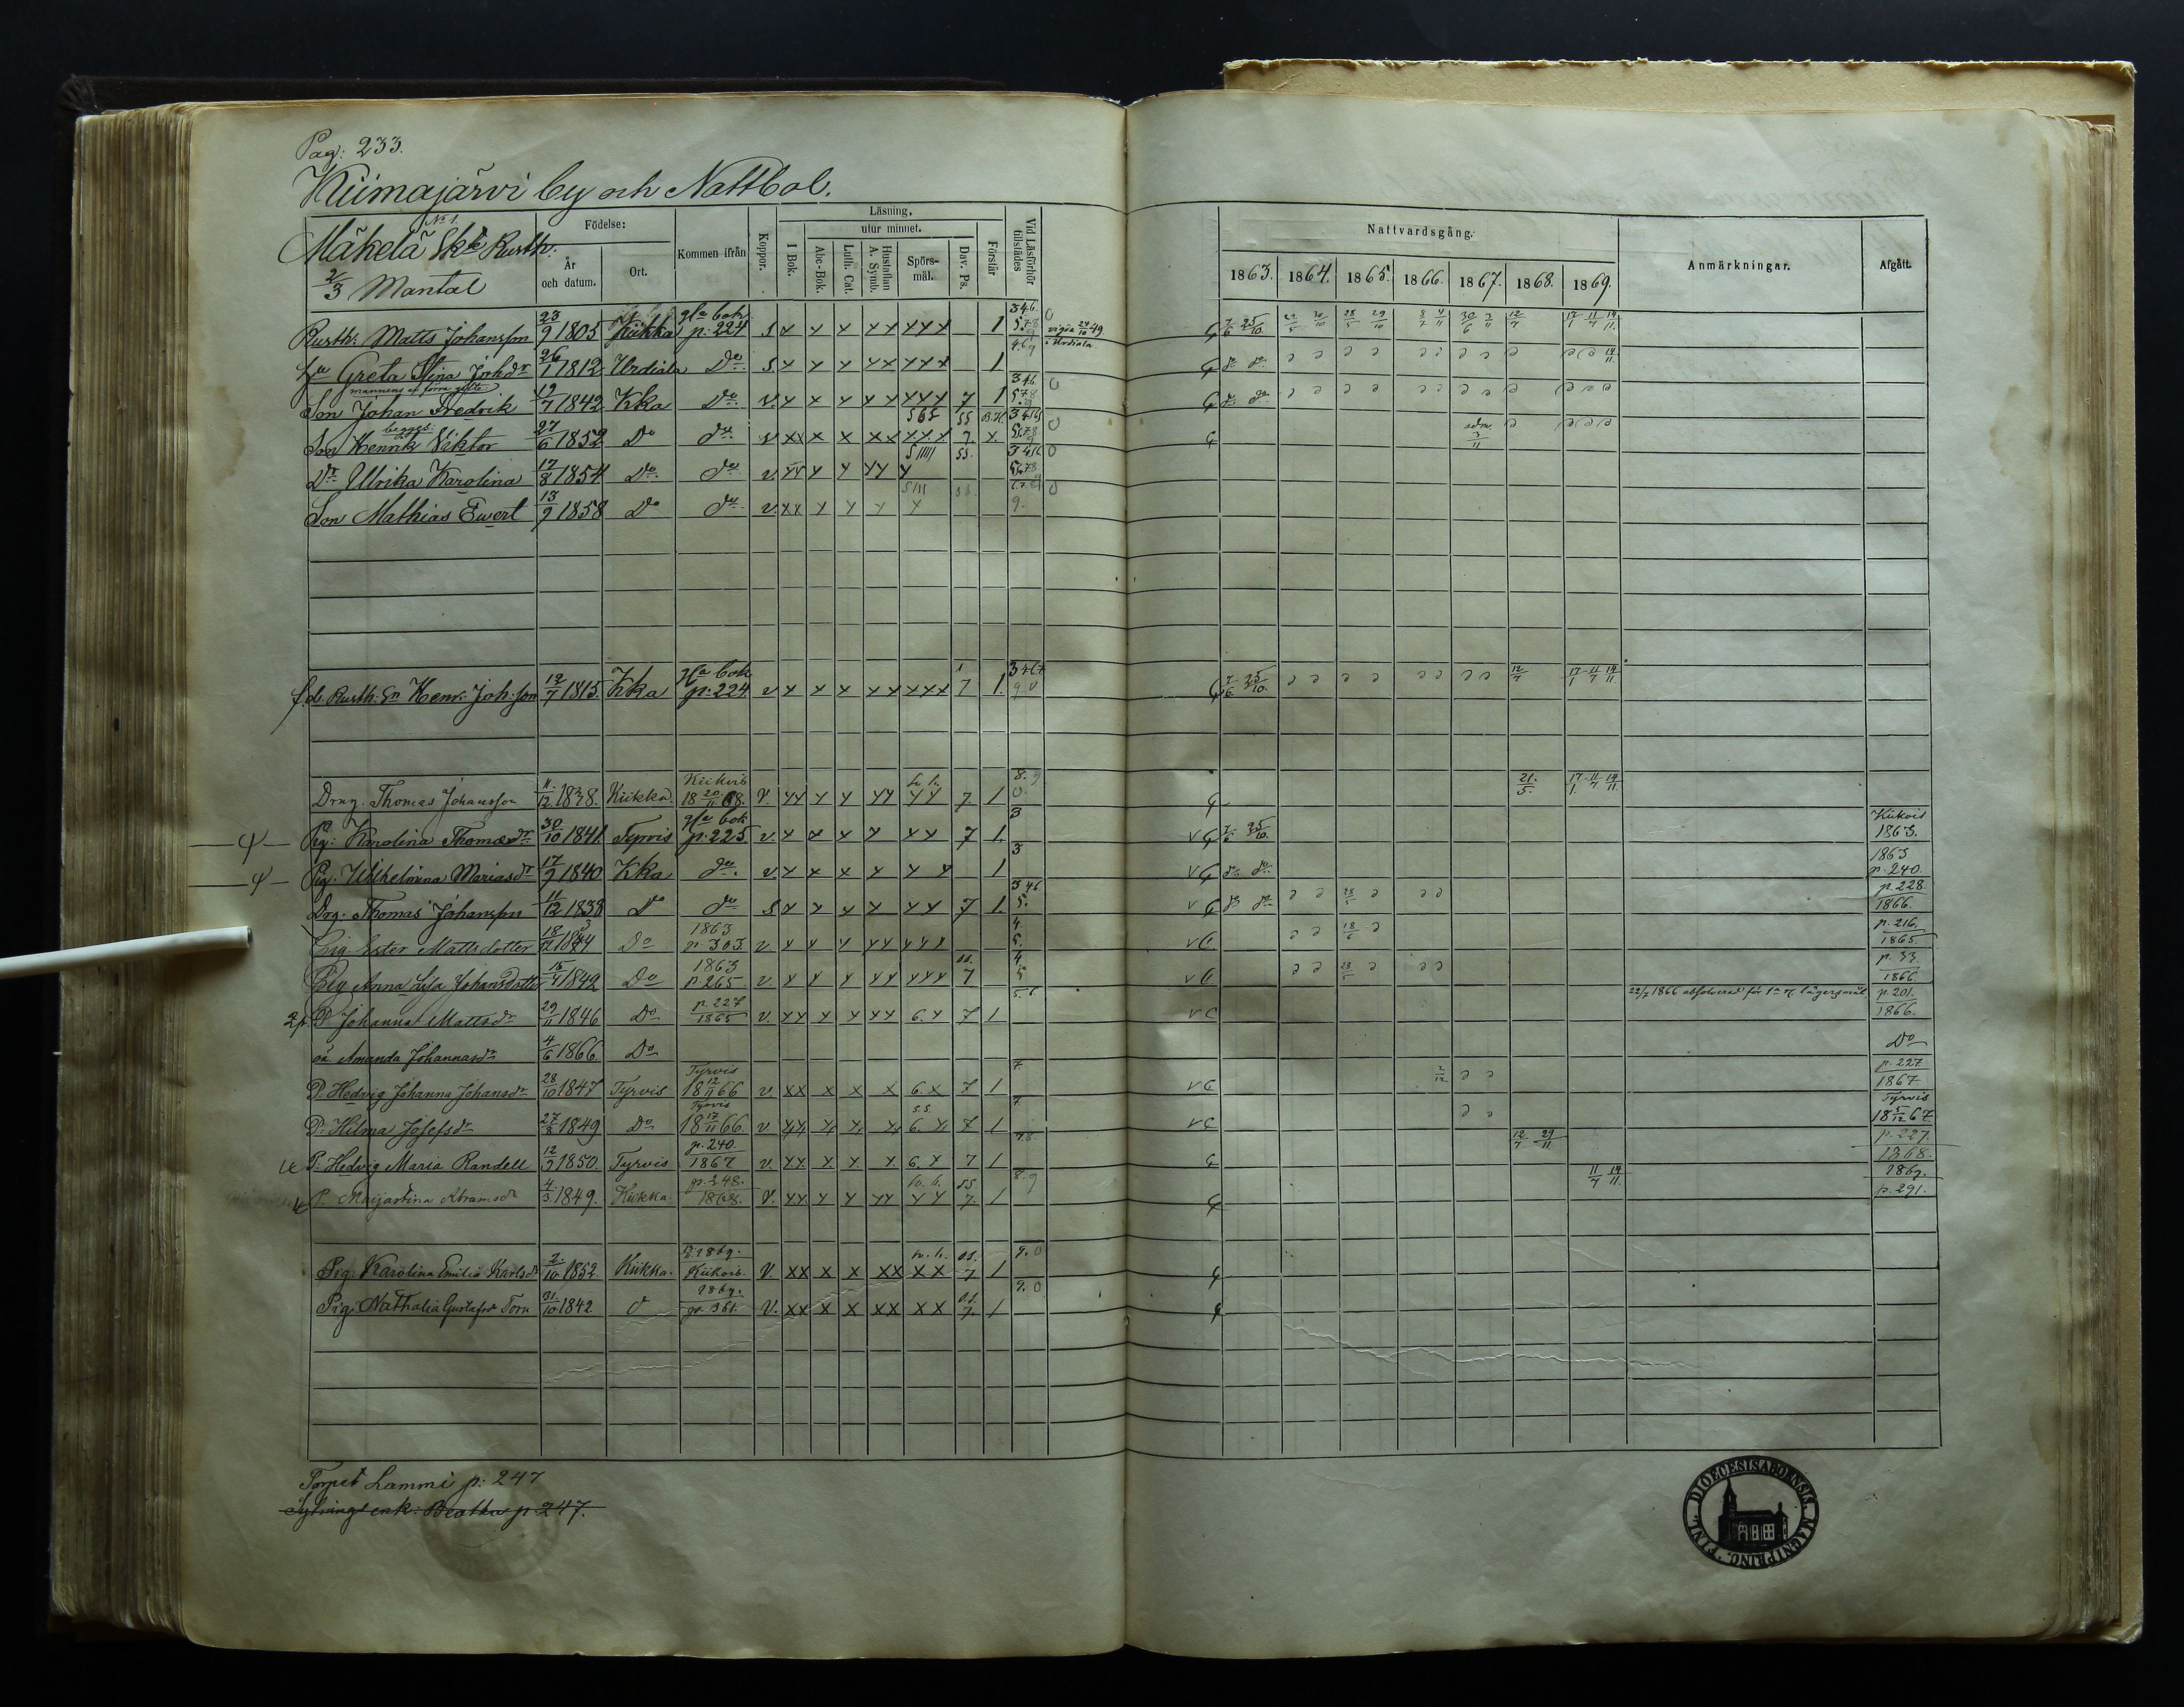 Pag: 233.
Kiimajärvi by och Nattbol.
No 1.
Mäkelä Skte Rusth.
2/3 Mantal
Födelse:
År och datum.
Ort.
Kommen ifrån
Koppor.
Läsning,
I Bok.
utur minnet.
Abc-Bok.
Luth. Cat.
Hustaflan A. Symb.
Spörsmål.
Dav. Ps.
Förstår
Vid Läsförhör tillstädes
Nattvardsgång.
1863. 1864. 1865. 1866. 1867. 1868. 1869.
Anmärkningar.
Afgått.
Rusth: Matts Johansson 23/9 1805 Kiikka gla bok p. 224 s x x x xx xxx 1 vigda 24/10 49 i Urdiala 7/6 25/10
Hu Greta Stina Johdr 26/1 1812 Urdiala Do s x x x xx xxx 1
mannens i förra gifte
Son Johan Fredrik 19/7 1842 Kka Do v. x x x xx xxx 7 1
begges
Son Henrik Viktor 27/6 1852 Do do v xx x x xx xxx 7. x adm. 3/11
Dr Ulrika Karolina 17/8 1854 Do do v. xx x x xx x
Son Mathias Ewert 13/9 1858 Do do v. xx x x x x
f.d. Rusth: Sn Henr. Joh:son 12/7 1815 Kka gla bok p. 224 v x x x xx xxx 7 1. 7/6 25/10 12/7 17/1 11/7 14/11
Drng. Thomas Johansson 11/12 1838. Kiikka. Kiikois 18 20/11 68. V. xx x x xx xx 7 1 21/5. 17/1. 11/7 14/11
Pig: Karolina Thomasdr 30/10 1841 Tyrvis gla bok p. 225 v. x x x x xx 7 1. 3 7/6 25/10. Kiikois 1863.
Pig. Wilhelmina Mariasdr 17/7 1840 Kka do v. x x x x x x 1 3 1863 p. 240.
Drg. Thomas Johansson 11/12 1838 Do do s x x x x xx 7 1. 28/5 p. 228 1866.
Pig Ester Mattsdotter Do 1863 p. 303. v. x x x xx xxx 18/6 p. 216. 1865.
Pig Anna Lisa Johansdotter 15/4 1842 Do 1863 p. 265 v. x x x xx xxx 7 28/5 p. 33 1866
P. Johanna Mattsdr 29/11 1846 Do p. 227 1865 v. xx x x xx 6. x 7 1 22/7 1866 absolverad för 1a lägersmål p. 201. 1866.
oä Amanda Johannasdr 4/6 1866 Do Do
P. Hedvig Johanna Johansdr 28/10 1847 Tyrvis Tyrvis 18 12/11 66 v. xx x x x 6. x 7 1 7. 2/12 p. 227 1867
P. Hilma Josefsdr 27/8 1849 Do Tyrvis 18 17/11 66. v xx x x x 6. x 7 1 7 Tyrvis 18 5/12 67.
P: Hedvig Maria Randell 12/9 1850. Tyrvis p. 240. 1867 v. xx x x x 6. x 7 1 7.8 12/7 29/11 p. 227. 1868.
P. Maijastina Abramsdr 4/3 1849. Kiikka. p. 248. 1868. V. xx x x xx xx 7. 1 8.9 11/7 14/11 1869. p. 291.
Pig. Karolina Emilia Karlsdr 2/10 1852. Kiikka. 1869. Kiikois. V. xx x x xx xx 7 1 9. 0
Pig. Nathalia Gustafsdr Torn 31/10 1842 d 1869. p. 361. V. xx x x xx xx 7. 1 9. 0
Torpet Lammi p: 247
Sytnings enk: Beatha p 247.
FINL. DIOECESIS ABOENSIS. MAGNI PRINC.